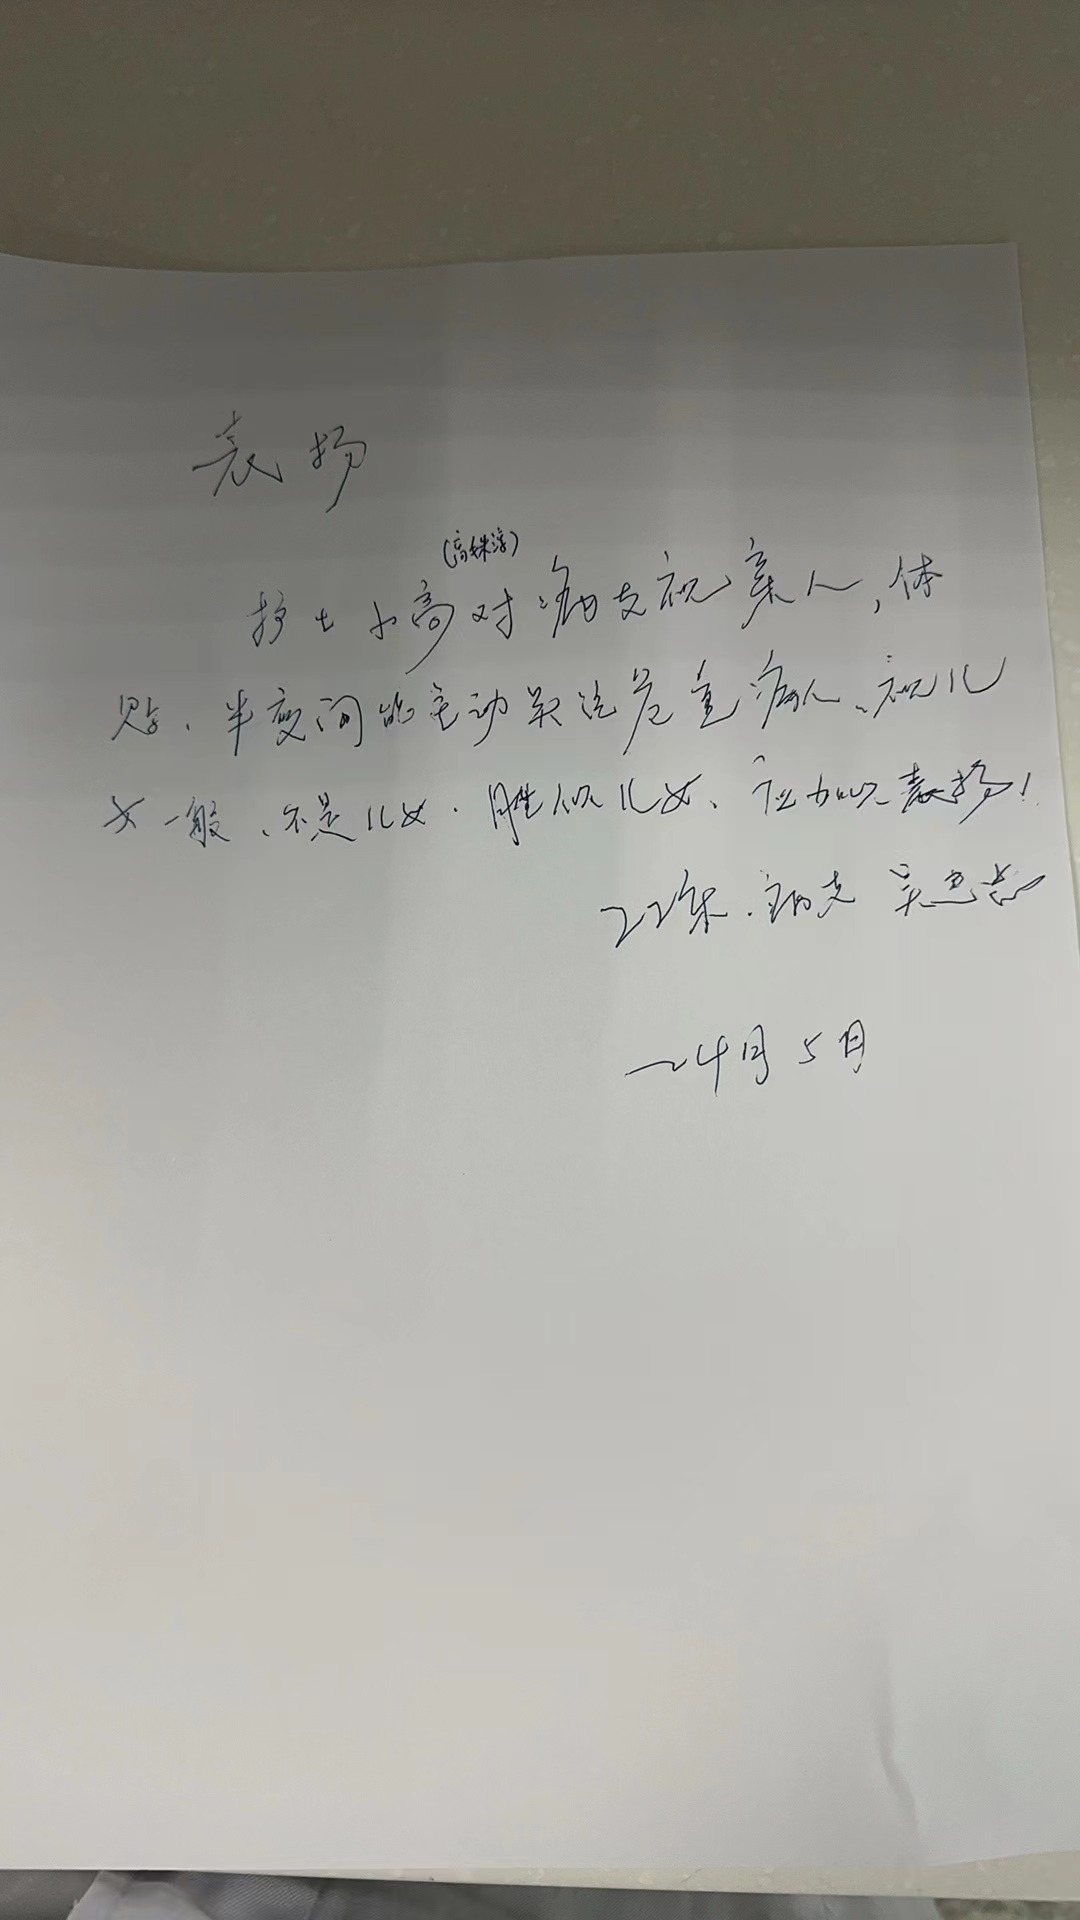 表扬
(高姝淳)
护士小高对病友视亲人,体
贴、半夜间能主动关注危重病人、视儿
女一般、不是儿女.胜似儿女、应加以表扬!
22床.病友 吴
4月5日